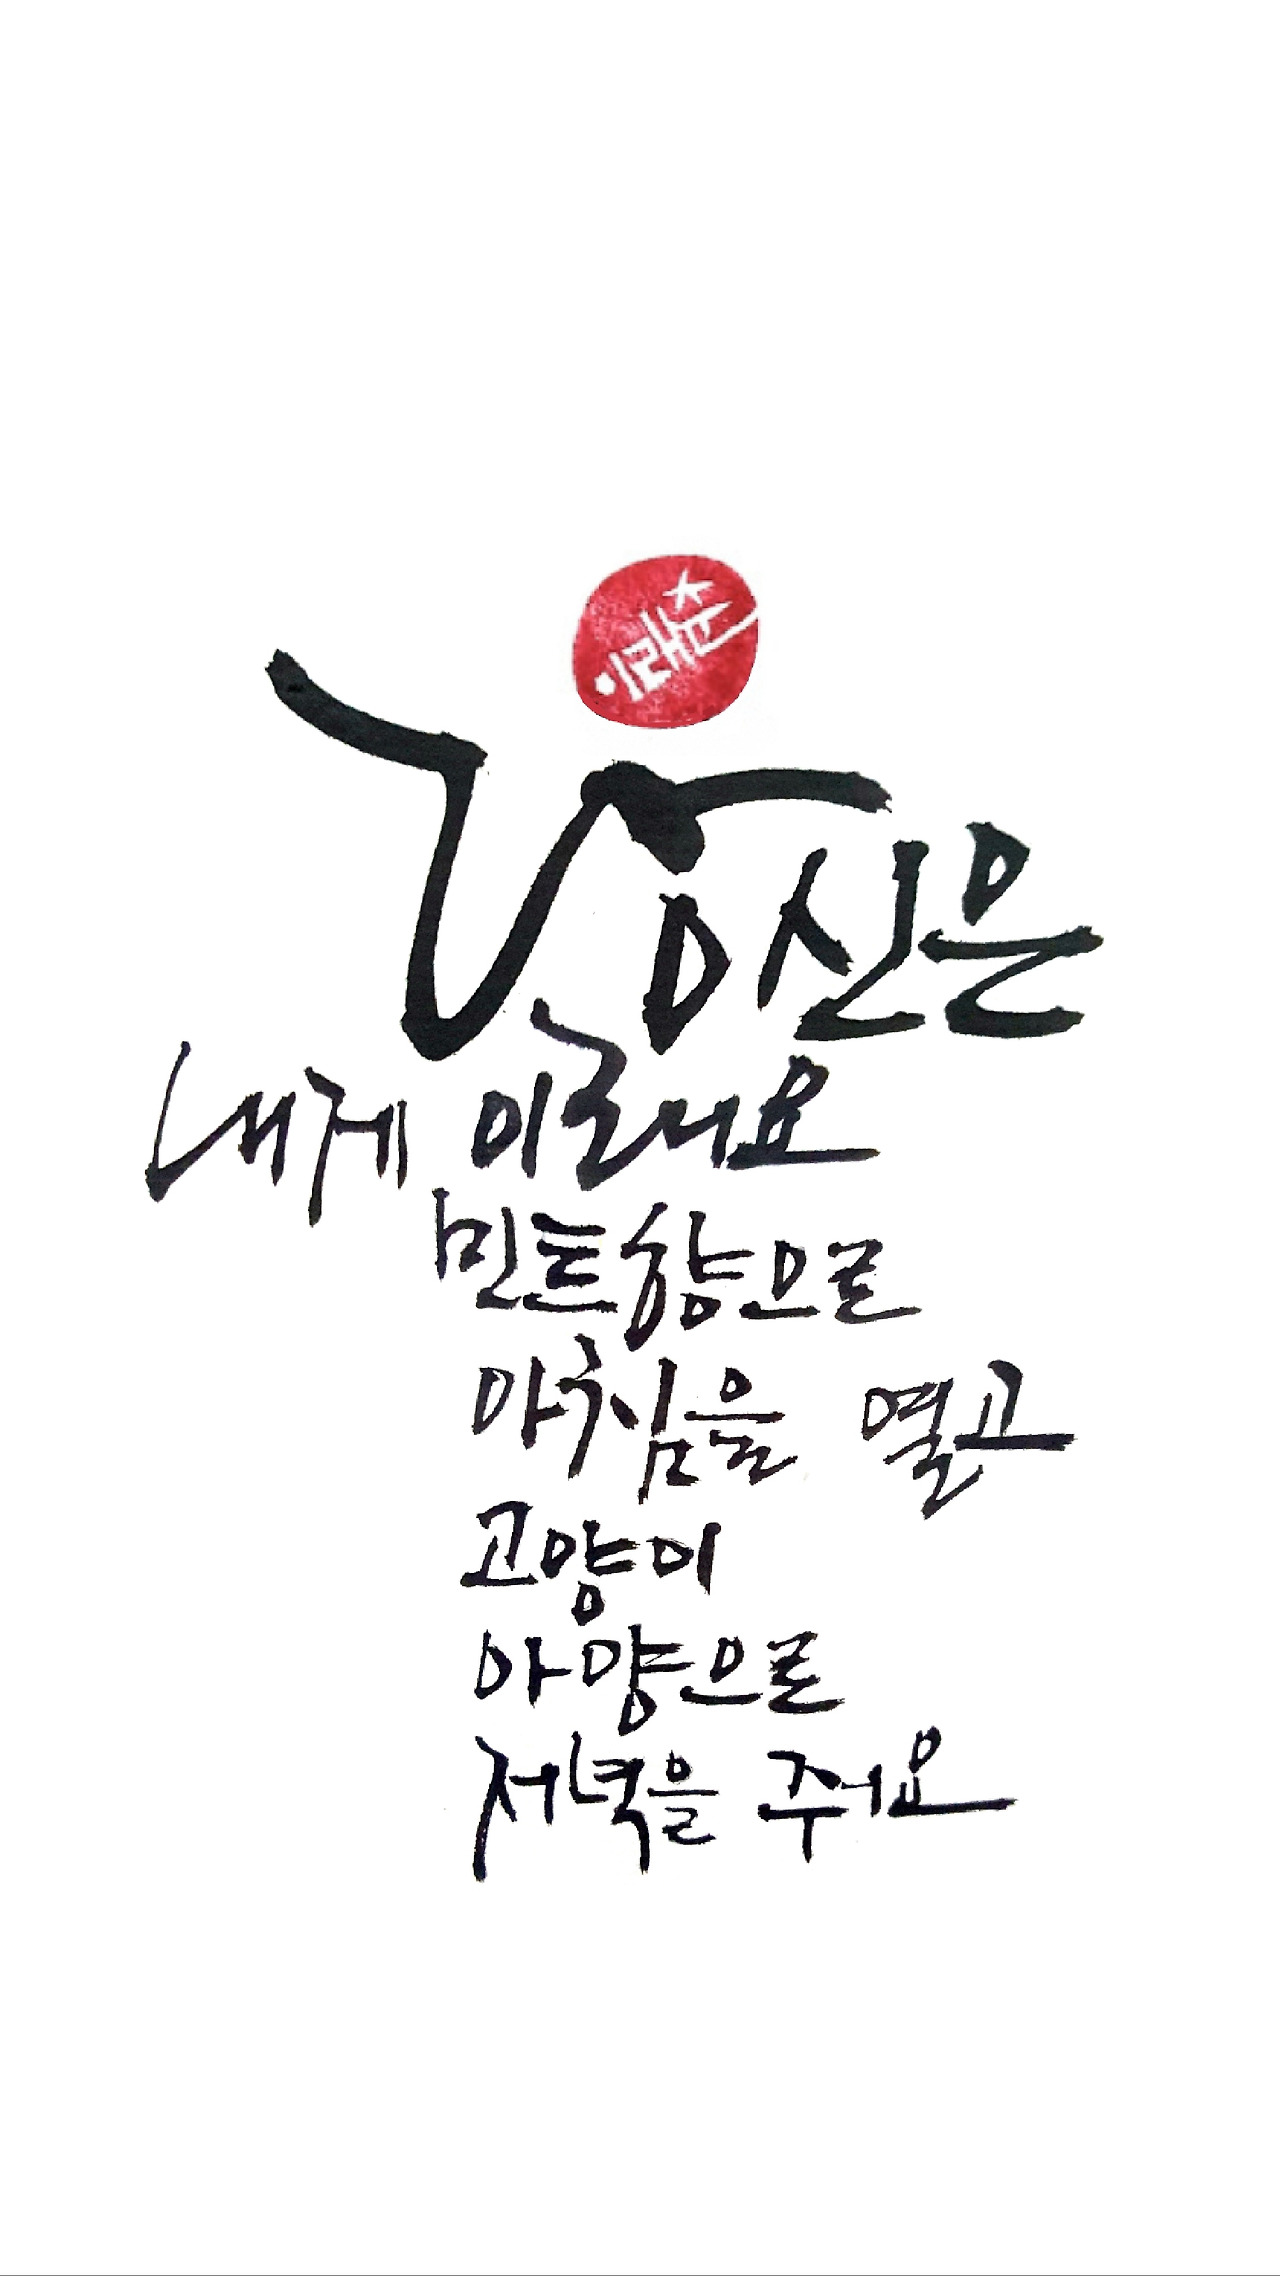 이래춘
당신은
내게 이래요
민트향으로
아침을 열고
고양이
아양으로
저녁을 주어요